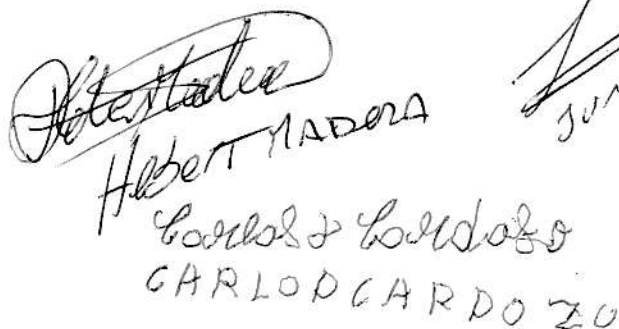 Hebert MADERA
JUN
Carlos J Cardozo
CARLOD CARDO ZO